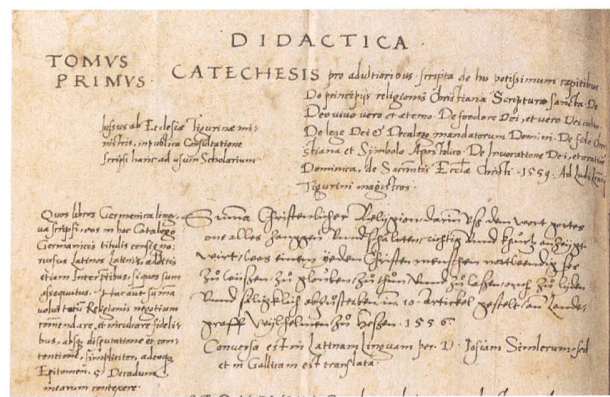 DIDACTICA
TOMVS
PRIMVS
CATECHESIS pro adultioribus scripta de his potissimum capitibus
De principijs religionis Christianæ Scriptura sancta. De
Deo vivo vero et æterno. De foedere Dei, et vero Dei cultu.
De lege Dei & Decalogo mandatorum Domini. De fide Chri-
stiana et Symbolo Apostolico. De Invocatione Dei, et oratione
Dominica, de Ecclæ Christi. 1559. Ad Ludi
Tigurini magistros.
Iussus ab Ecclesiæ Tigurinæ mi-
nistris, in publica Consultatione
scripsi hanc ad usum Scholarum
Quos libros Germanica ling-
va scripsi, eos in hoc Catalogo
Germanicis titulis consigno,
rursus Latinos Latinis,
etiam Interpretibus, si quos sum
assequutus. autem summa
volui totum Religionis negotium
commendare, et inculcare fideli-
bus, absque disputatione et con-
tentione, simpliciter, adeoque
Epitomen 5 Decadum
mearum contexere.
Summa Christenlicher Religion darin uss dem wort gottes
one alles zanggen und schälten, richtig und kurtz anzeigt
wirt, was einem yeden Christen menschen notwendig sye
zů wüssen, zů glouben, zů thůn und zů lassen, ouch zů lyden
und säligklich abzůsterben in 10 artickel gestelt, an Landt-
graff Wylhelmen zů Hessen. 1556
Conversa est in Latinam linguam per D. Iosiam Simlerum, sed
et in Gallicam est translata